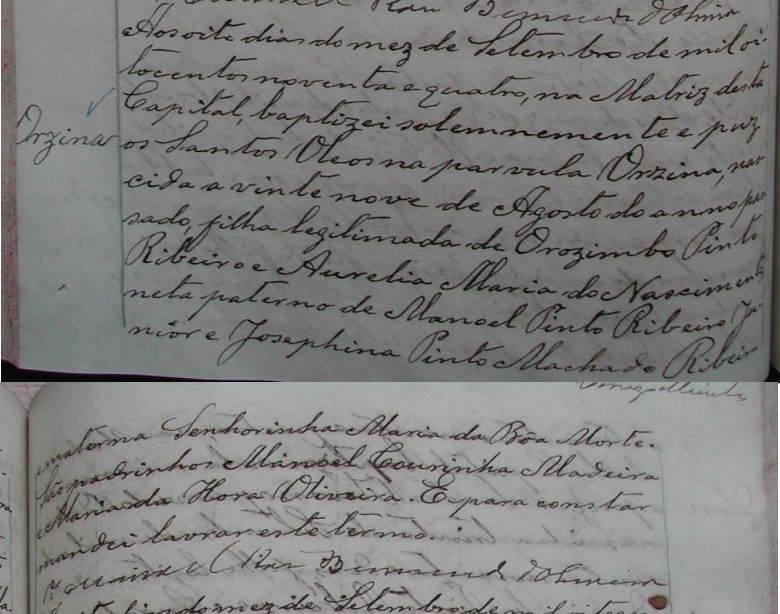 Aos oito dias do mez de Setembro de mil oi-
tocentos noventa e quatro, na Matriz desta
Capital, baptizei solemnemente e puz
Orzina
os Santos Oleos na parvula Orzina, nas-
cida a vinte nove de Agosto do anno pas-
sado, filha legitimada de Orozimbo Pinto
Ribeiro e Aurelia Maria do Nascimento
neta paterno de Manoel Pinto Ribeiro Ju-
nior e Josephina Pinto Machado Ribeiro
e materna Senhorinha Maria da Bôa Morte.
São padrinhos Manoel Courinha Madeira
e Maria da Hora Oliveira. E para constar
mandei lavrar este termo.
dias do mez de Setembro de mil